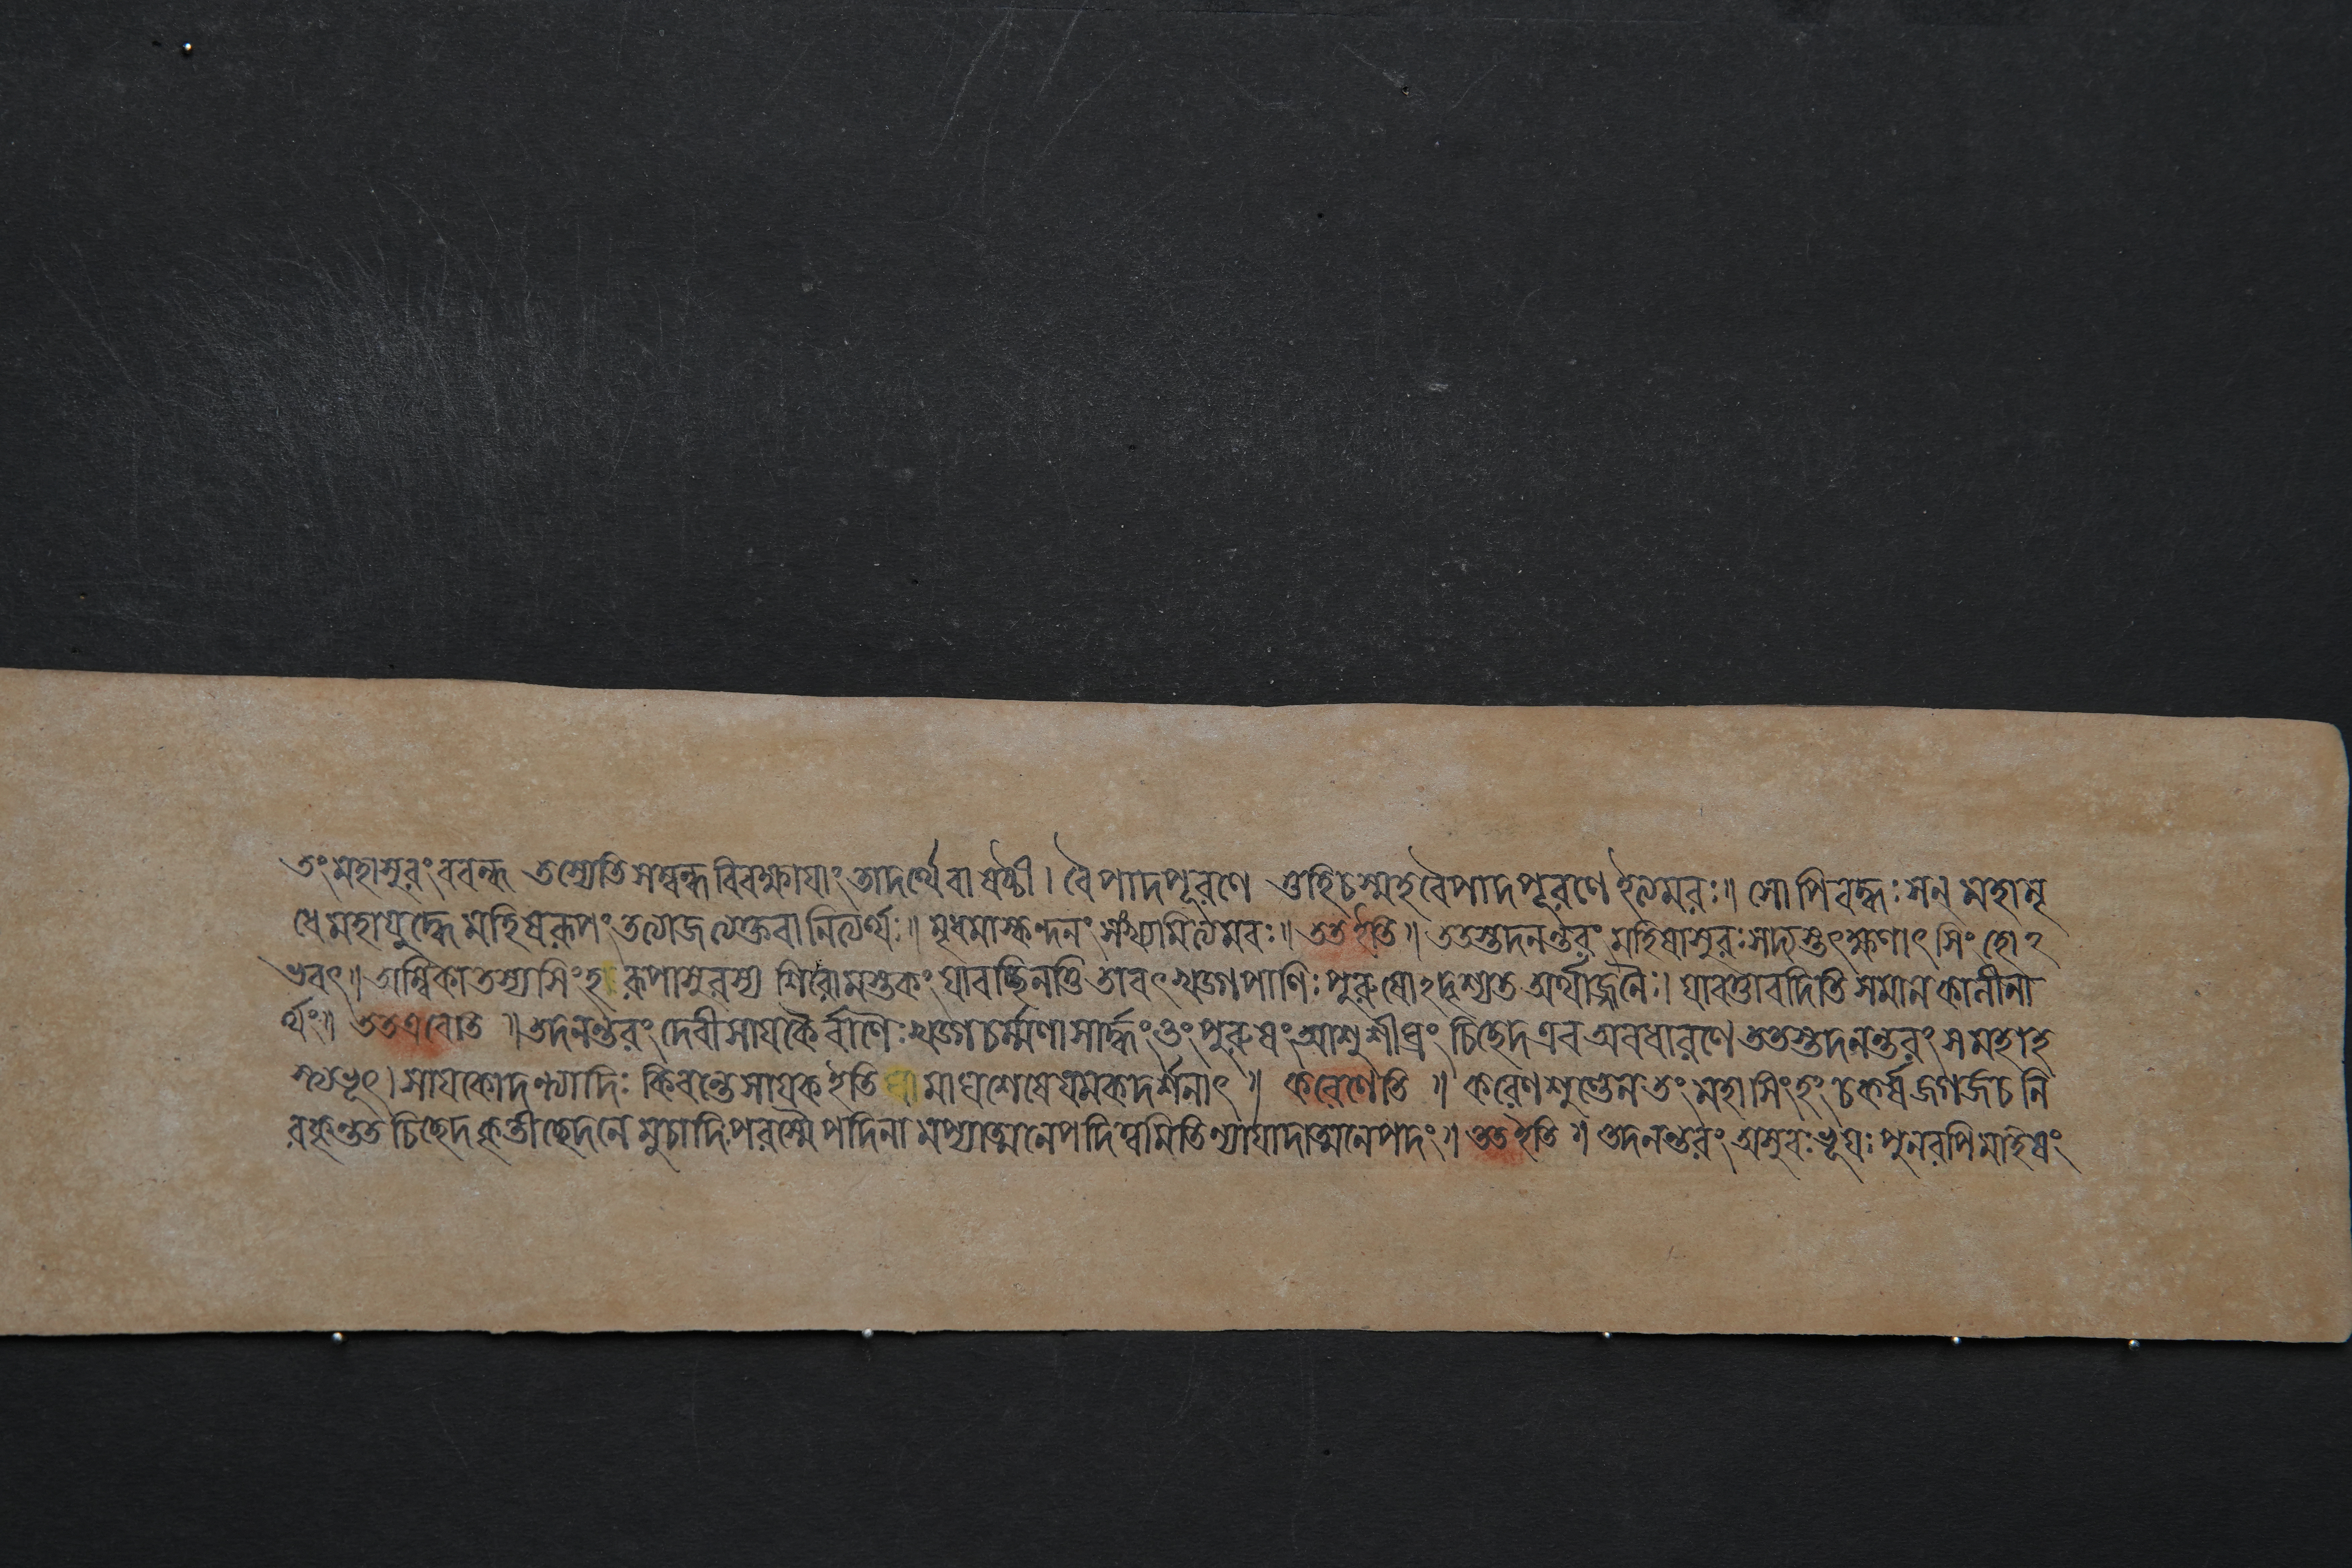 তং মহাসুরং ববন্ধ তস্যেতি সম্বন্ধবিবক্ষায়াং তাদর্থ্যে বা ষষ্ঠী । বৈ পাদপূরণে তুহিচস্মহবৈপাদপূরণে ইত্যমরঃ ॥ সোপি বদ্ধঃ সন্ মহামৃ
ধে মহাযুদ্ধে মহিষরূপং তত্যাজ ত্যক্তবানিত্যর্থঃ ॥ মৃধমাস্কন্দনং সংখ্যামিত্যমরঃ ॥ তত ইতি ॥ ততস্তদনন্তরং মহিষাসুরঃ সদ্যস্তৎক্ষণাৎ সিংহোঽ
ভবৎ ॥ অম্বিকা তস্য সিংহরূপাসুরস্য শিরোমস্তকং যাবচ্ছিনত্তি তাবৎ খড্গপাণিঃ পুরুষোঽদৃশ্যত অর্থাজ্জনৈঃ । যাবত্তাবদিতি সমানকালীনা
র্থং ॥ তত এবেতি ॥ তদনন্তরং দেবী সায়কৈর্বাণৈঃ খড্গচর্ম্মণা সার্দ্ধং তং পুরুষং আশু শীঘ্রং চিচ্ছেদ এব অবধারণে ততস্তদনন্তরং স মহাহ
স্ত্যভূৎ । সায়কোদন্ত্যাদিঃ কিবন্তে সায়ক ইতি মাঘশেষে যমকদর্শনাৎ ॥ করেণেতি ॥ করেণ শুণ্ডেন তং মহাসিংহং চকর্ষ জগর্জ চ নি
রকৃন্তত চিচ্ছেদ কৃতীচ্ছেদনে মুচাদি পরস্মৈপদিনামপ্যাত্মনেপদিত্বমিতি ন্যায়াদাত্মনেপদং ॥ তত ইতি ॥ তদনন্তরং অসুরঃ ভূয়ঃ পুনরপি মাহিষং